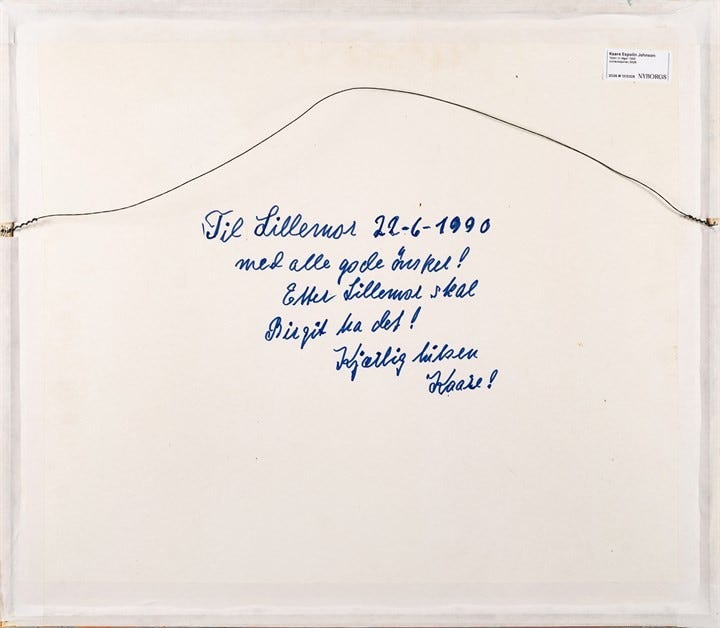 Kaare Espolin Johnson
NYBORGS
Til Lillemor 22-6-1990
med alle gode önsker!
Etter Lillemor skal
Birgit ha det!
Kjærlig hilsen
Kaare!